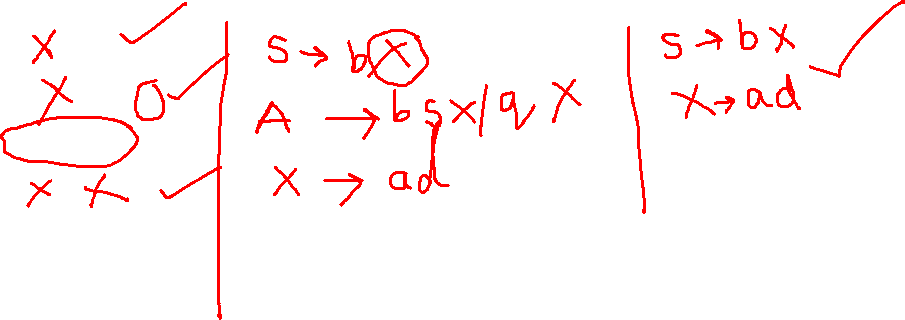 X
X O
X X
S → bX
A → bSX/qX
X → ad
S → bX
X → ad